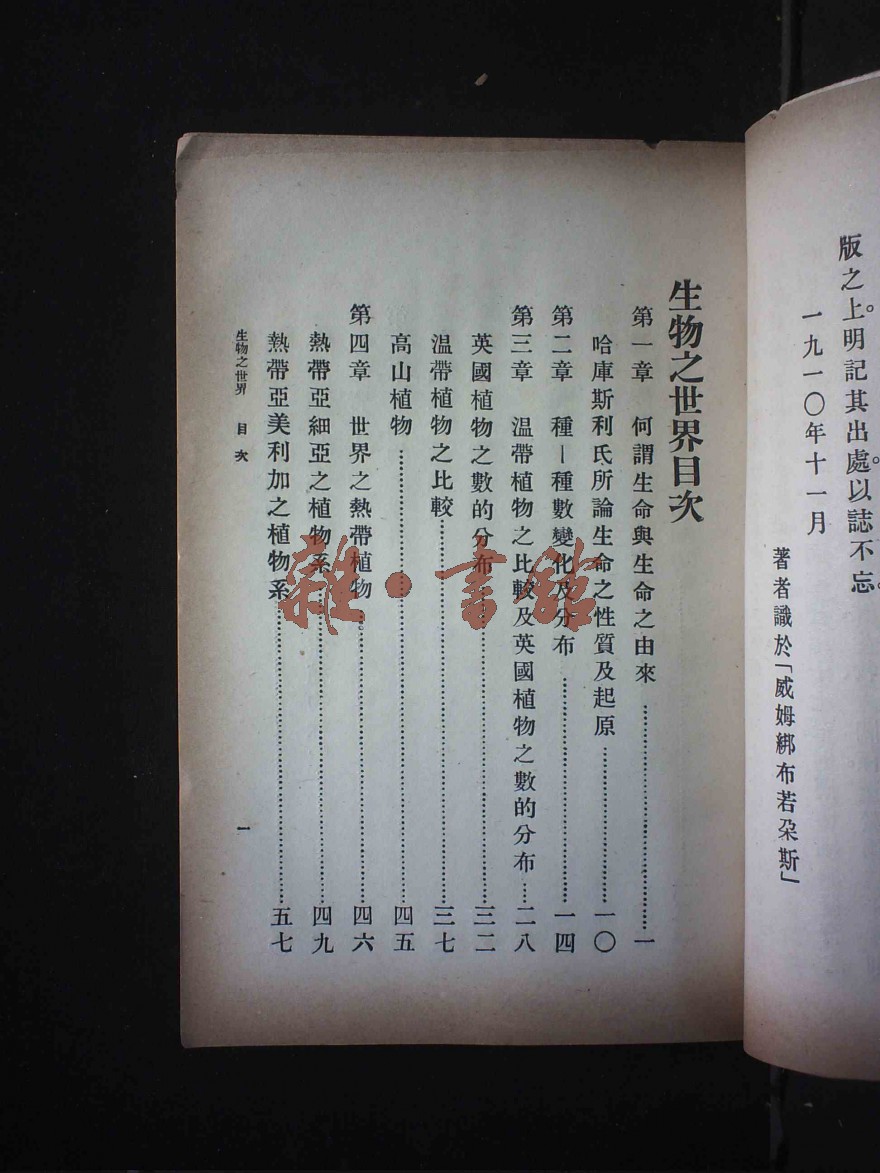 版之上。明記其出處。以誌不忘。
一九一〇年十一月
著者識於「威姆綁布若朶斯」
生物之世界目次
第一章 何謂生命與生命之由來……一
哈庫斯利氏所論生命之性質及起原……一〇
第二章 種—種數變化及分布……一四
第三章 温帶植物之比較及英國植物之數的分布……二八
英國植物之數的分布……三二
温帶植物之比較……三七
高山植物……四五
第四章 世界之熱帶植物……四六
熱帶亞細亞之植物系……四九
熱帶亞美利加之植物系……五七
生物之世界 目次
一
雜·書館